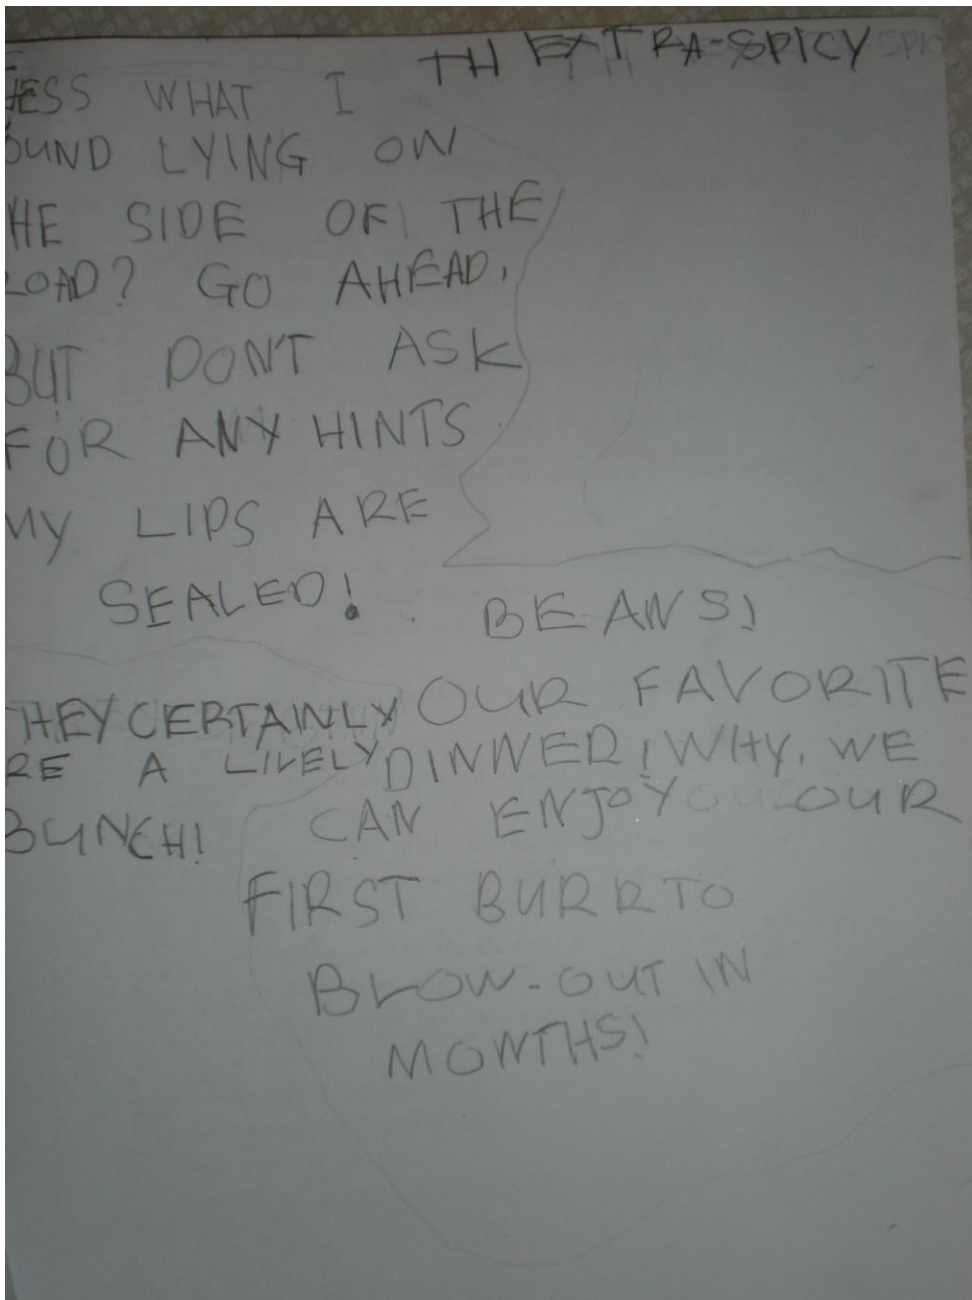 TH EXTRA-SPICY SPICY
ESS WHAT I
OUND LYING ON
HE SIDE OF THE
ROAD? GO AHEAD,
BUT DON'T ASK
FOR ANY HINTS
MY LIPS ARE
SEALED!
BEANS!
THEY CERTAINLY
RE A LIVELY
BUNCH!
OUR FAVORITE
DINNER! WHY, WE
CAN ENJOY OUR OUR
FIRST BURRTO
BLOW-OUT IN
MONTHS!